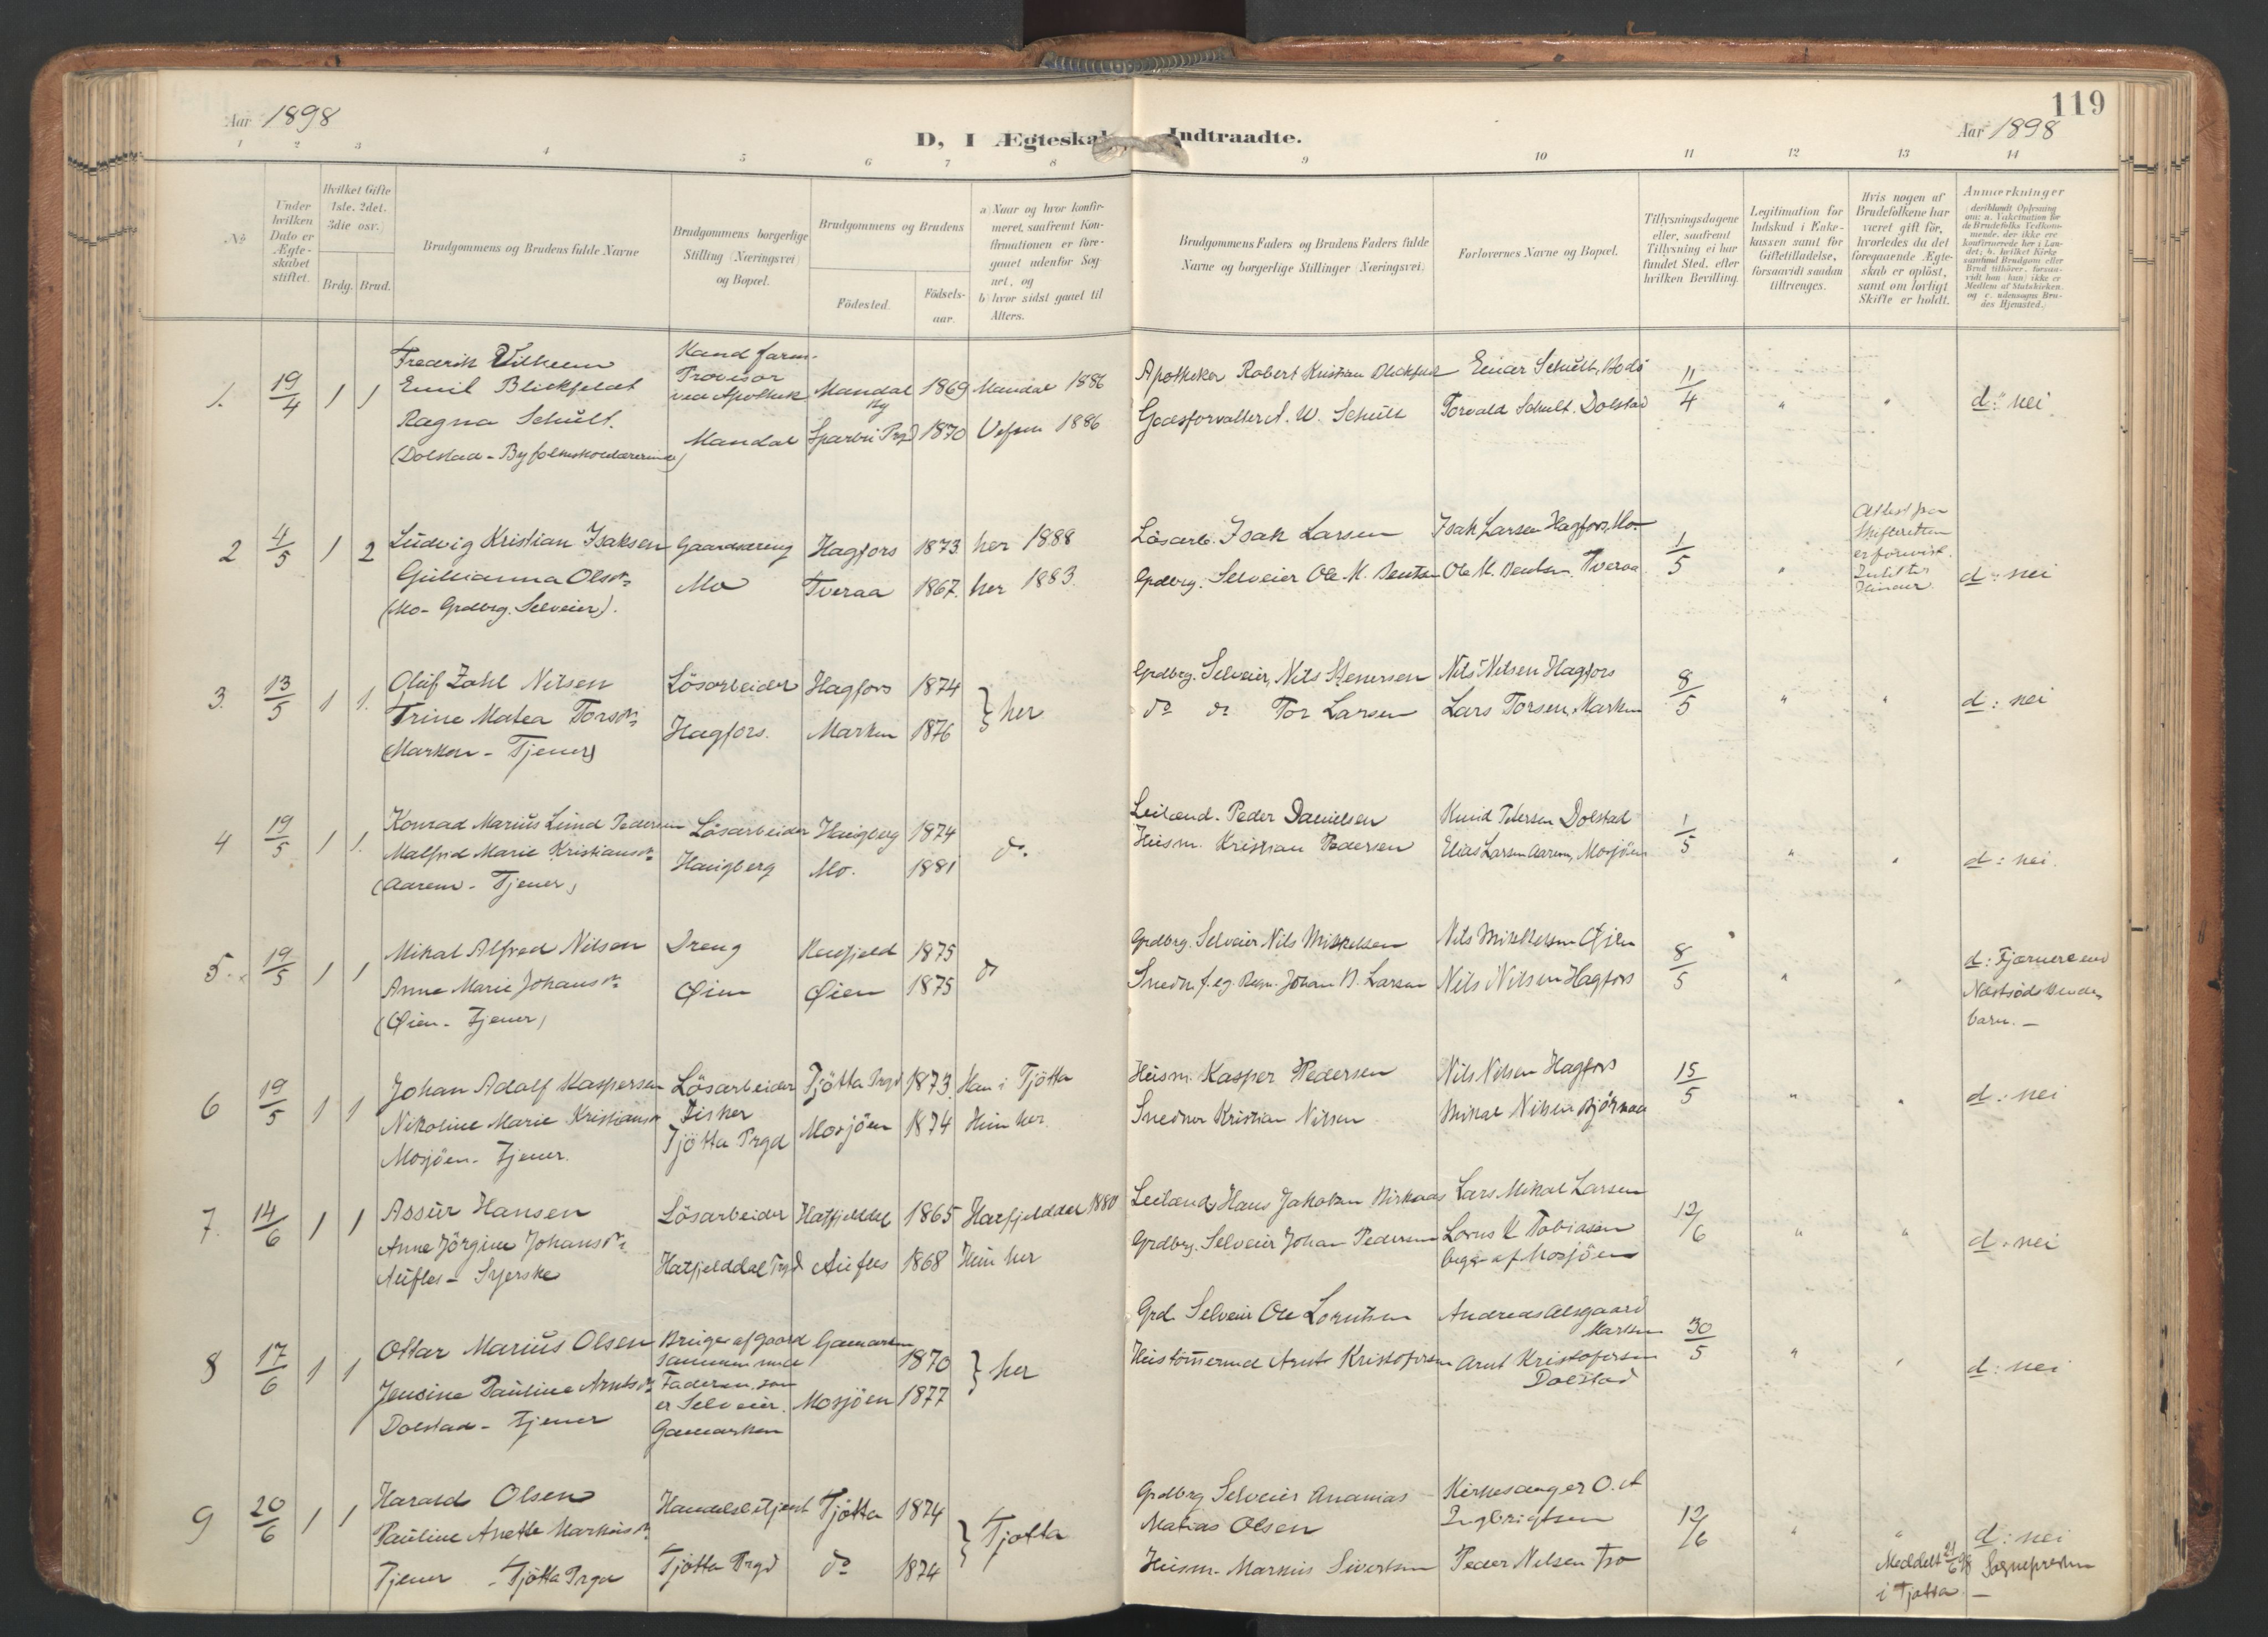 119
Aar 1898
D, I Ægteskab Indtraadte.
Aar 1898
1 2 3 4 5 6 7 8 9 10 11 12 13 14
No
Under hvilken Dato er Ægteskabet stiftet.
Hvilket Gifte 1ste. 2det. 3die osv.)
Brdg. Brud.
Brudgommens og Brudens fulde Navne
Brudgommens borgerlige Stilling (Næringsvei) og Bopæl.
Brudgommens og Brudens
Födested.
Födsels-aar.
a) Naar og hvor konfirmeret, saafremt Konfirmationen er foregaaet udenfor Sognet, og
b) hvor sidst gaaet til Alters.
Brudgommens Faders og Brudens Faders fulde Navne og borgerlige Stillinger (Næringsvei)
Forlovernes Navne og Bopæl.
Tillysningsdagene eller, saafremt Tillysning ei har fundet Sted, efter hvilken Bevilling.
Legitimation for Indskud i Enkekassen samt for Giftetilladelse, forsaavidt saadan tiltrænges.
Hvis nogen af Brudefolkene har været gift för, hvorledes da det foregaaende Ægteskab er oplöst, samt om lovligt Skifte er holdt.
Anmærkninger
1. 19/4 1 1
Fredrik Vilhelm
Emil Blickfeldt
Ragna Schult.
(Dolstad - Byfolkeskolelærerinde)
Kand farm.
Provisor
ved Apothek
Mandal
Mandal By 1869 Mandal 1886
Sparbu Prgd 1870 Vefsn 1886
Apotheker Robert Kristian Blickfeldt Einar Schult, Bodö
Godsforvalter A. W. Schult Torvald Schult. Dolstad
11/4 " " d: nei
2 4/5 1 2
Ludvig Kristian Isaksen
Gullianna Olsdtr
(Mo - Grdbrg. Selveier).
Gaardsdreng
Mo
Hagfors 1873 her 1888
Tveraa 1867. her 1883.
Lösarb. Isak Larsen Isak Larsen Hagfors, Mo
Grdbrg. Selveier Ole M. Bentsen Ole M. Bentsen. Tveraa
1/5 "
Attest fra
Skifteretten
er forevist.
Intet til
Hinder
d: nei
3. 13/5 1 1.
Oluf Zahl Nilsen
Trine Matea Torsdtr
(Marken - Tjener)
Lösarbeider
Hagfors.
Hagfors 1874
Marken 1876
} her
Grdbrg. Selveier, Nils Stenersen Nils Nilsen Hagfors
do do Tor Larsen Lars Torsen, Marken
8/5 " " d: nei
4 19/5 1 1.
Konrad Marius Lund Pedersen
Malfrid Marie Kristiansdtr
(Aarem - Tjener)
Lösarbeider
Haugberg
Haugberg 1874
Mo. 1881
do
Leilænd. Peder Danielsen Knud Petersen Dolstad
Husm. Kristian Pedersen Elias Larsen Aarem, Mosjöen
1/5 " " d: nei.
5. 19/5 1 1
Mikal Alfred Nilsen
Anne Marie Johansdtr
(Øien - Tjener)
Dreng
Øien
1875
Øien 1875
do
Grdbrg. Selveier Nils Mikkelsen Nils Mikkelsen Øien
Snedk. f. eg. Regn. Johan B. Larsen Nils Nilsen Hagfors
8/5 " "
d: Fjærnere end
Næstsödskende-
barn. -
6 19/5 1 1
Johan Adolf Kaspersen
Nikoline Marie Kristiansdtr
Mosjöen - Tjener.
Lösarbeider
Fisker
Tjötta Prgd
Tjötta Prgd 1873. Han i Tjötta
Mosjöen 1874 Hun her.
Husm. Kasper Pedersen Nils Nilsen Hagfors
Snedker Kristian Nilsen Mikal Nilsen Bjørnaa
15/5 " " d: nei
7. 14/6 1 1
Assur Hansen
Anne Jörgine Johansdtr
Aufles - Syerske
Lösarbeider
Hatfjelddal Prgd
Hatfjelddal 1865 Hatfjelddal 1880
Aufles 1868 Hun her
Leilænd. Hans Jakobsen Lars Mikal Larsen
Grdbrg. Selveier Johan Pedersen Tobiasen
begge af Mosjöen
12/6 " " d: nei
8 17/6 1 1
Ottar Marius Olsen
Jensine Pauline Arntsdtr
Dolstad - Tjener
Bruger af Gaard
sammen med
Faderen, som
er Selveier.
Gamarken
Gamarken 1870
Mosjöen 1877
} her
Grd. Selveier Ole Lorntsen Andreas Olsgaard
Marken
Hustömmermd Arnt Kristofersen Arnt Kristofersen
Dolstad
30/5 " " d: nei
9 20/6 1 1
Harald Olsen
Pauline Anette Markusdtr
Tjener - Tjötta Prgd
Handelsbetjent
Tjötta Prgd
Tjötta 1874
do 1874
} Tjötta
Grdbrg Selveier Ananias Kirkesanger O. A
Matias Olsen Ingbrigtsen
Husm. Markus Sivertsen Peder Nilsen Tro
12/6 " " d: nei
Meddelt 21/6 98 Sognepresten
i Tjötta -